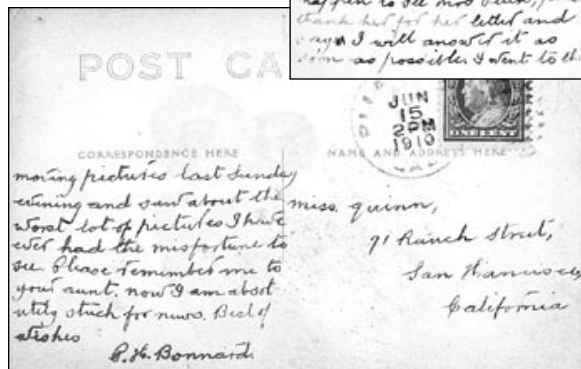 happen to see
thank her for her letter and
say I will answer it as
soon as possible. I went to the
POST CA
JUN
15
2 PM
1910
CAL
ONE CENT
CORRESPONDENCE HERE
NAME AND ADDRESS HERE
moving pictures last Sunday
evening and saw about the
worst lot of pictures I have
ever had the misfortune to
see. Please remember me to
your aunt. now I am absol
utely stuck for news. Best of
wishes
C. H. Bonnard.
miss. quinn,
71 Ranch street,
San Francisco,
California